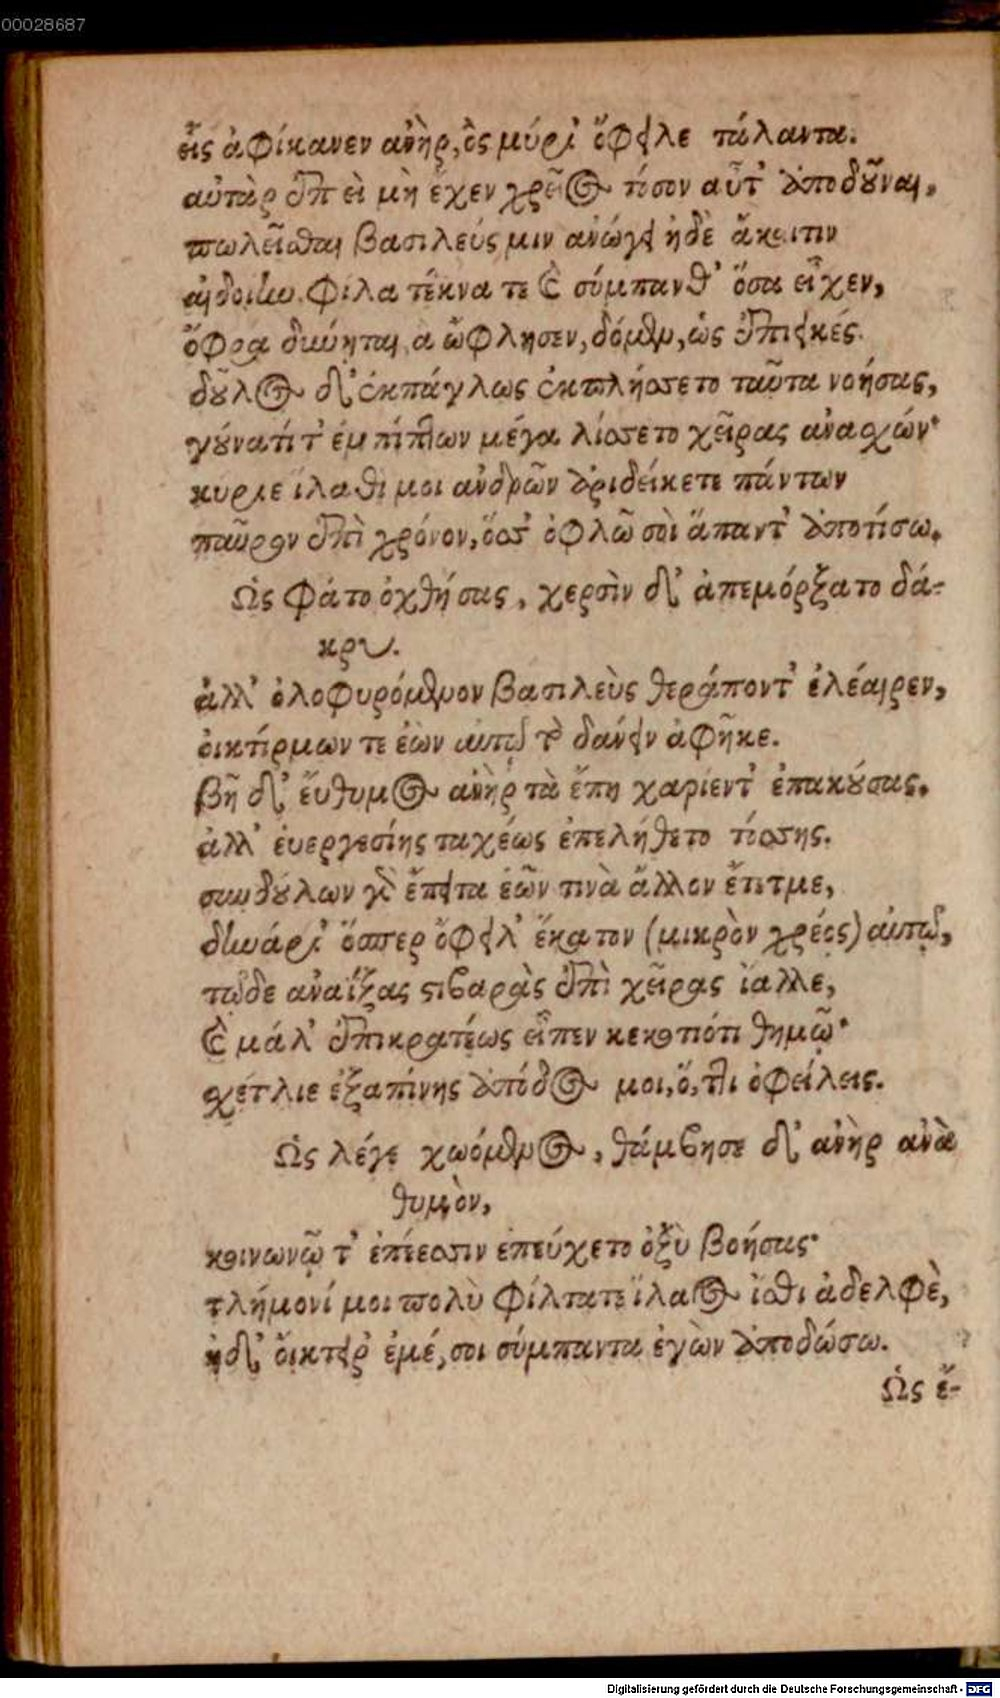 00028687
εἷς ἀφίκανεν ἀνὴρ, ὃς μύρι' ὄφειλε τάλαντα.
αὐτὰρ ἐπεὶ μὴ ἔχεν χρεῖος τόσον αὖτ' ἀποδοῦναι,
πωλεῖσθαι βασιλεύς μιν ἀνώγει ἠδὲ ἄκοιτιν
αἰδοίην, φίλα τέκνα τε καὶ σύμπανθ' ὅσα εἶχεν,
ὄφρα δύνηται, ἃ ὤφλησεν, δόμεναι, ὡς ἐπιεικές.
δοῦλος δ' ἐκπάγλως ἐκπλήσσετο ταῦτα νοήσας,
γούνατί τ' ἐμπίπτων μέγα λίσσετο χεῖρας ἀνασχών·
κύριε ἵλαθί μοι ἀνδρῶν ἀριδείκετε πάντων
παῦρον ἐπὶ χρόνον, ὅσσ' ὀφλῶ σοὶ ἅπαντ' ἀποτίσω.
Ὣς φάτο ὀχθήσας, χερσὶν δ' ἀπεμόρξατο δά-
κρυ.
ἀλλ' ὀλοφυρόμενον βασιλεὺς θεράποντ' ἐλέαιρεν,
οἰκτίρμων τε ἐὼν αὐτῷ τὸ δάνειν ἀφῆκε.
βῆ δ' ἔυθυμος ἀνὴρ τὰ ἔπη χαρίεντ' ἐπακούσας.
ἀλλ' ἐυεργεσίης ταχέως ἐπελήθετο τόσσης.
συνδούλων γὰρ ἔπειτα ἑῶν τινὰ ἄλλον ἔτετμε,
δηνάρι' ὅσπερ ὄφειλ' ἕκατον (μικρὸν χρέος) αὐτῷ,
τῷδε ἀναΐξας στιβαρὰς ἐπὶ χεῖρας ἴαλλε,
καὶ μάλ' ἐπικρατέως εἶπεν κεκοτιότι θημῷ·
σχέτλιε ἐξαπίνης ἀπόδος μοι, ὅ, ττι ὀφείλεις.
Ὣς λέγε χωόμενος, θάμβησε δ' ἀνὴρ ἀνὰ
θυμὸν,
κοινωνῷ τ' ἐπέεσσιν ἐπεύχετο ὀξὺ βοήσας·
τλήμονί μοι πολὺ φίλτατε ἵλαος ἴσθι ἀδελφὲ,
ἠδ' ὄικτειρ' ἐμέ, σοι σύμπαντα ἐγὼν ἀποδώσω.
Ὣς ἔ-
Digitalisierung gefördert durch die Deutsche Forschungsgemeinschaft - DFG